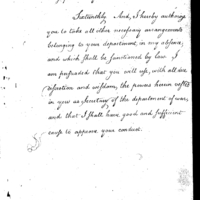 Sixteenthly. And, I hereby authorize
you to take all other necessary arrangements
belonging to your department, in my absence,
and which shall be sanctioned by law. I
am persuaded that you will use, with all due
discretion and wisdom, the powers herein vested
in you as Secretary of the department of war,
and that I shall have good and sufficient
cause to approve your conduct.